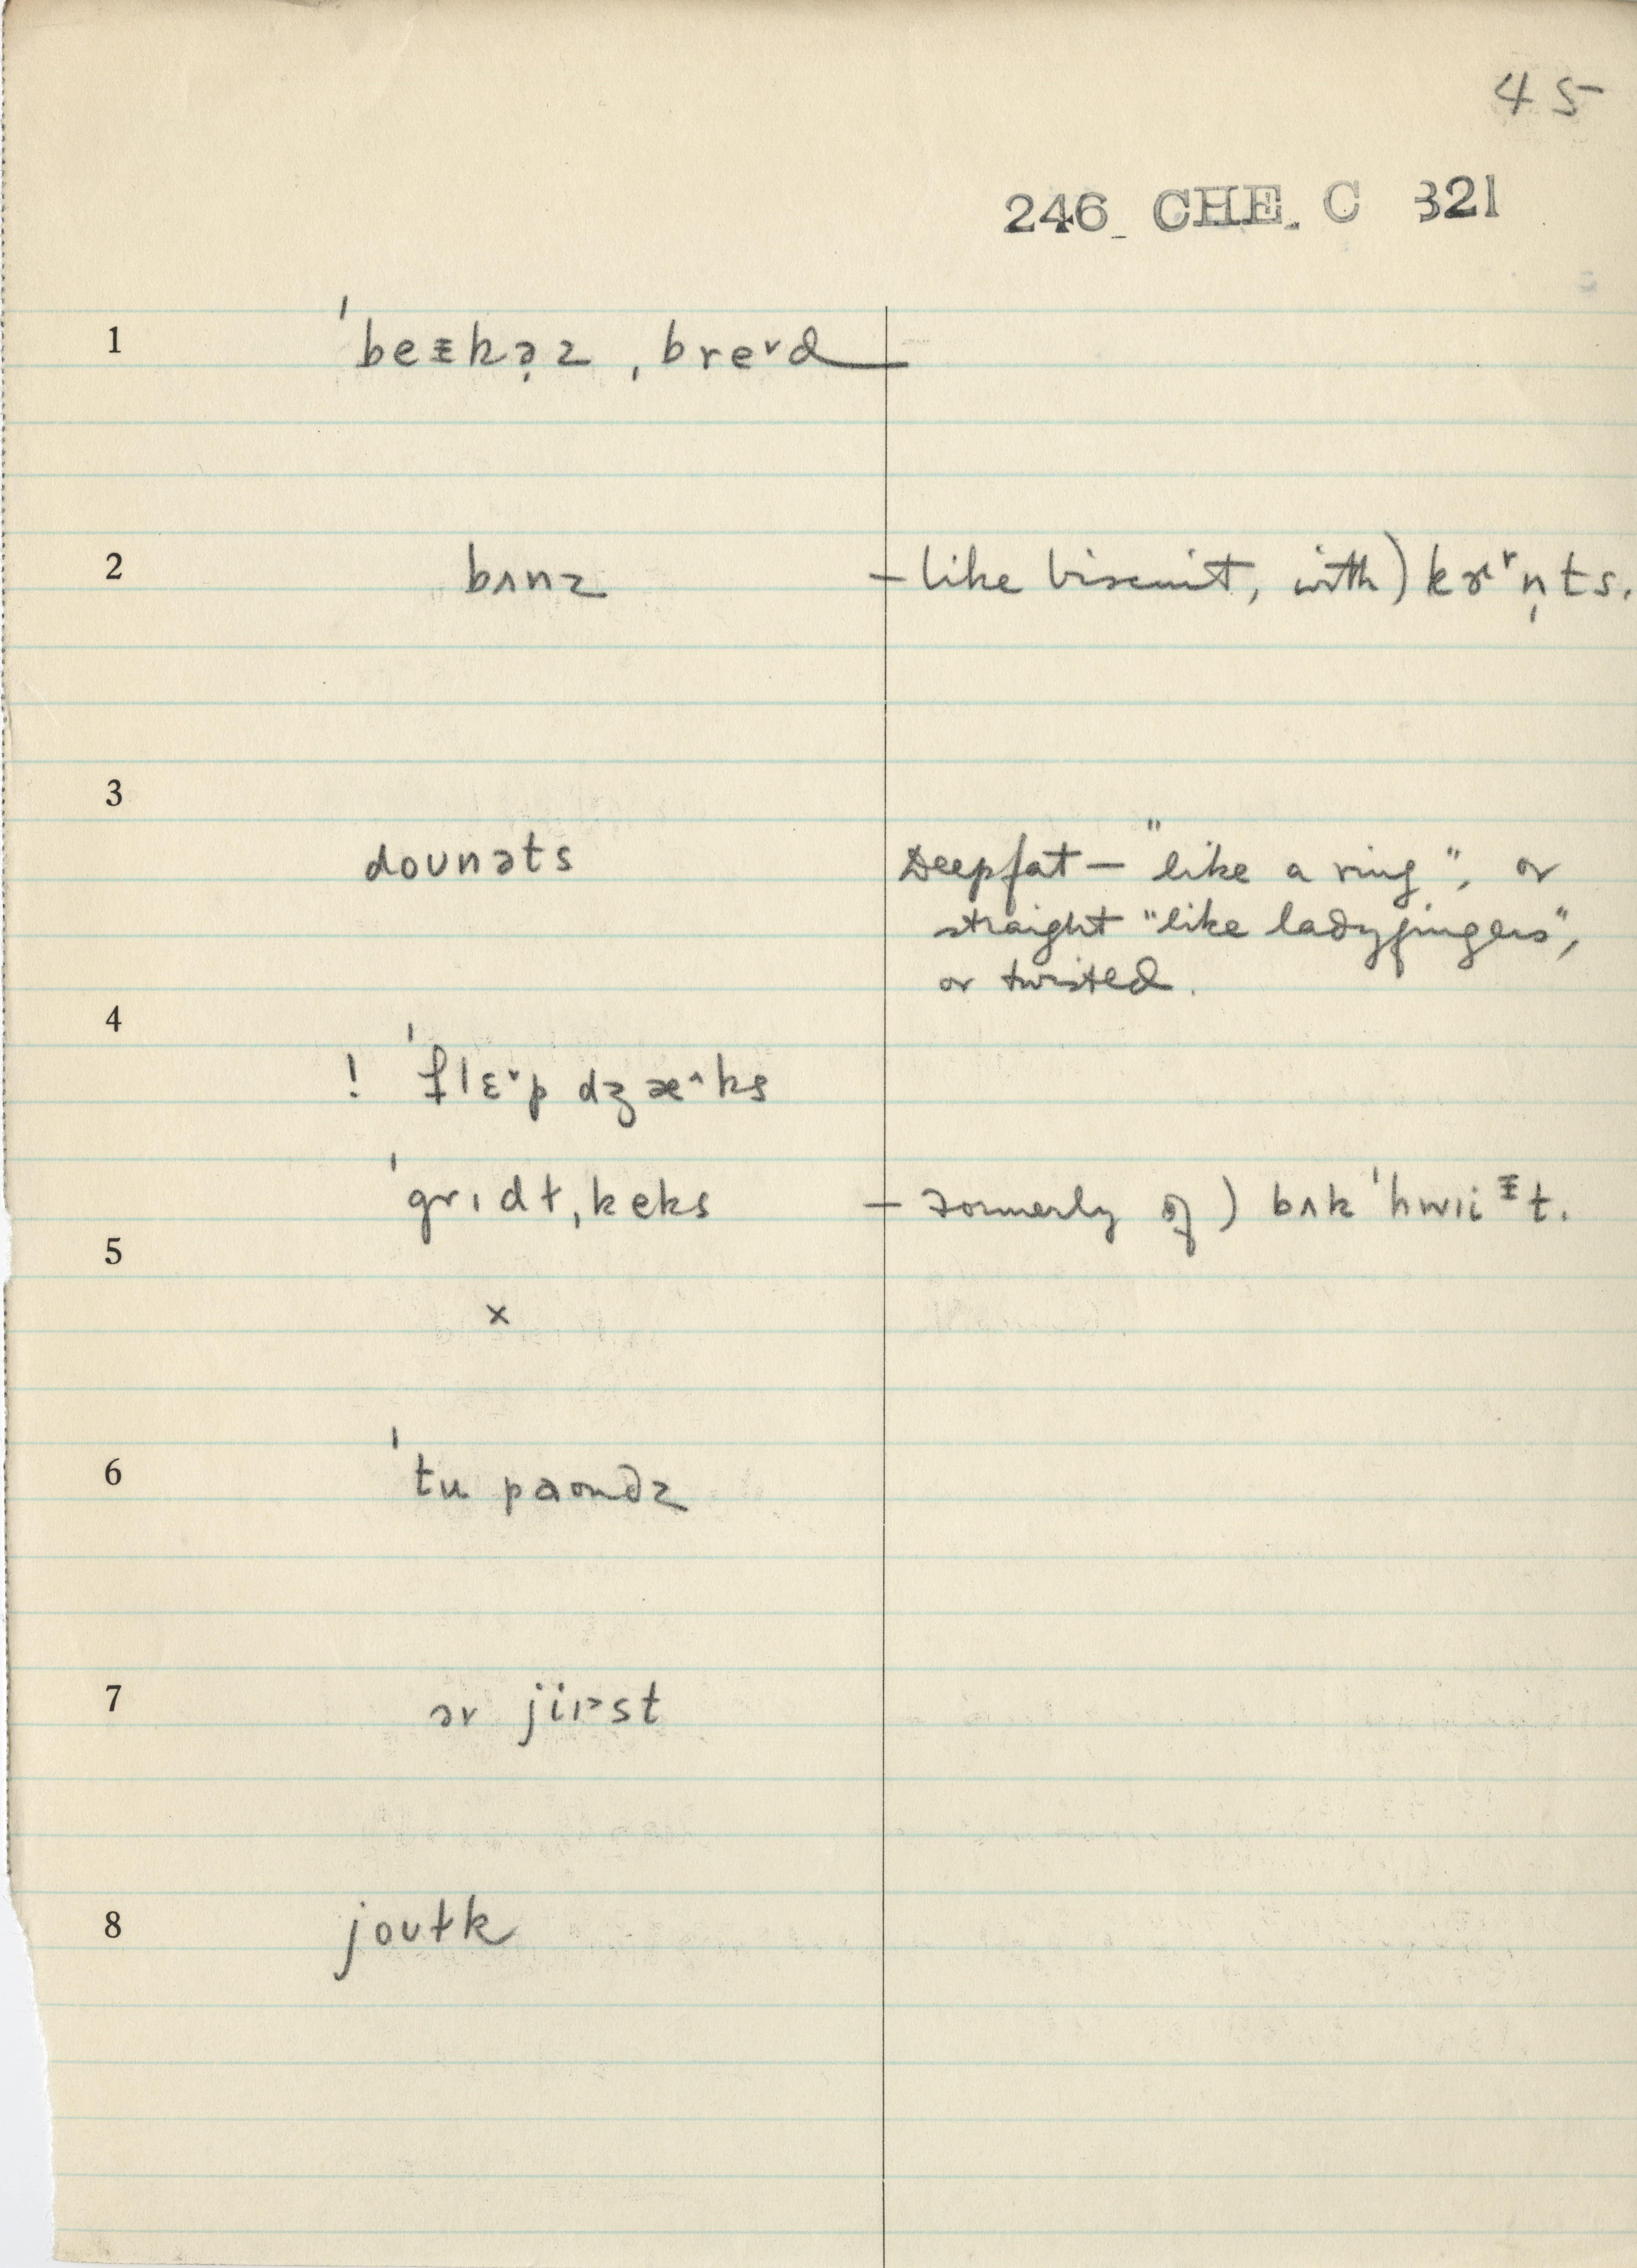 45
246 CHE. C 321
1 ˈbeᵻkə̩z ˌbreᵛd —
2 bʌnz – like biscuit, with) kɝ˞ṇts.
3
dounəts Deepfat — "like a ring", or
straight "like ladyfingers",
or twisted.
4
! ˈflɛᵛp dʒæ^ks
ˈgrɪdɫˌkeks – Formerly of) bʌkˈhwiiᵻt.
5
x
6 ˈtu paʊndz
7 ər jiɪ>st
8 jouɫk